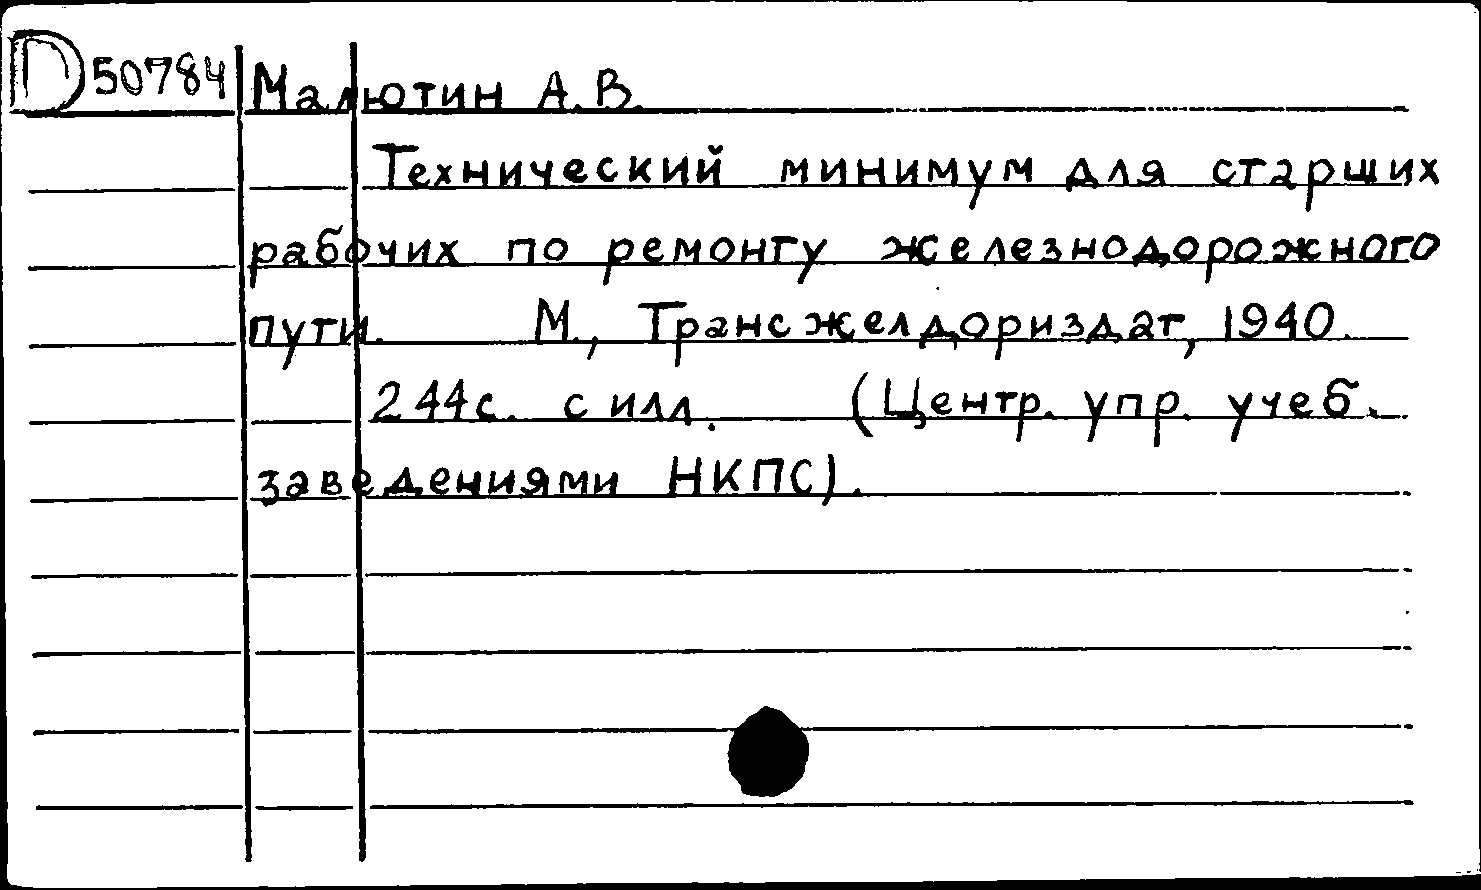 D50784 Малютин А.В.
Технический минимум для старших
рабочих по ремонту железнодорожного
пути. М., Трансжелдориздат, 1940.
244с. с илл. (Центр. упр. учеб.
заведениями НКПС).